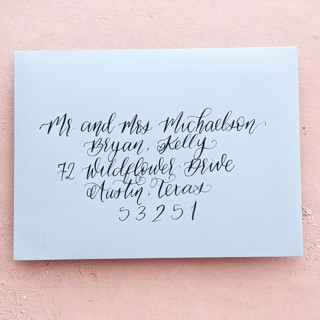 Mr and Mrs Michaelson
Bryan, Kelly
72 Wildflower Drive
Austin, Texas
53251